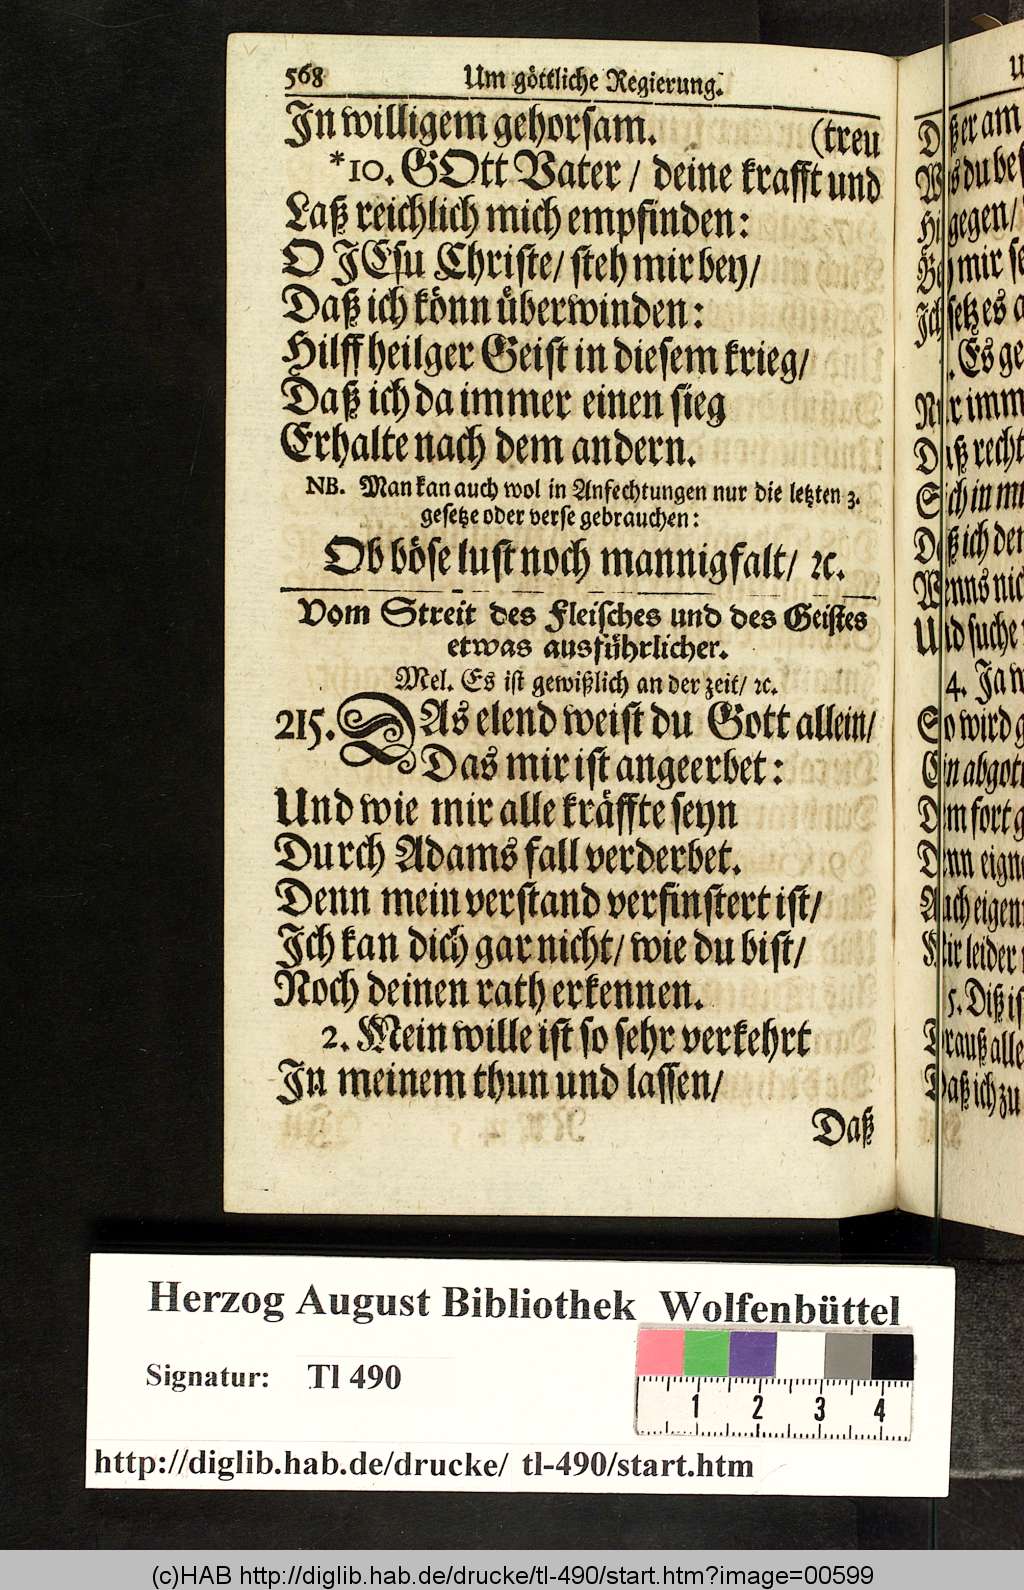 568 Um göttliche Regierung.
In willigem gehorsam. (treu
*10. GOtt Vater / deine krafft und
Laß reichlich mich empfinden:
O JEsu Christe/ steh mir bey/
Daß ich könn überwinden:
Hilff heilger Geist in diesem krieg/
Daß ich da immer einen sieg
Erhalte nach dem andern.
NB. Man kan auch wol in Anfechtungen nur die letzten 3.
gesetze oder verse gebrauchen:
Ob böse lust noch mannigfalt/ ꝛc.
Vom Streit des Fleisches und des Geistes
etwas ausführlicher.
Mel. Es ist gewißlich an der zeit/ ꝛc.
215. DAs elend weist du Gott allein/
Das mir ist angeerbet:
Und wie mir alle kräffte seyn
Durch Adams fall verderbet.
Denn mein verstand verfinstert ist/
Ich kan dich gar nicht/ wie du bist/
Noch deinen rath erkennen.
2. Mein wille ist so sehr verkehrt
In meinem thun und lassen/
Daß
er am
du bes
gegen/
mir
setz es
Es ge
imm
recht
ich in
ich den
nic
suche
4. Ja
So wird
Ein abgott
fort
eigne
Auch eigen
leider
5. Diß is
alle
ich zu
Herzog August Bibliothek Wolfenbüttel
Signatur: Tl 490
1 2 3 4
http://diglib.hab.de/drucke/ tl-490/start.htm
(c)HAB http://diglib.hab.de/drucke/tl-490/start.htm?image=00599